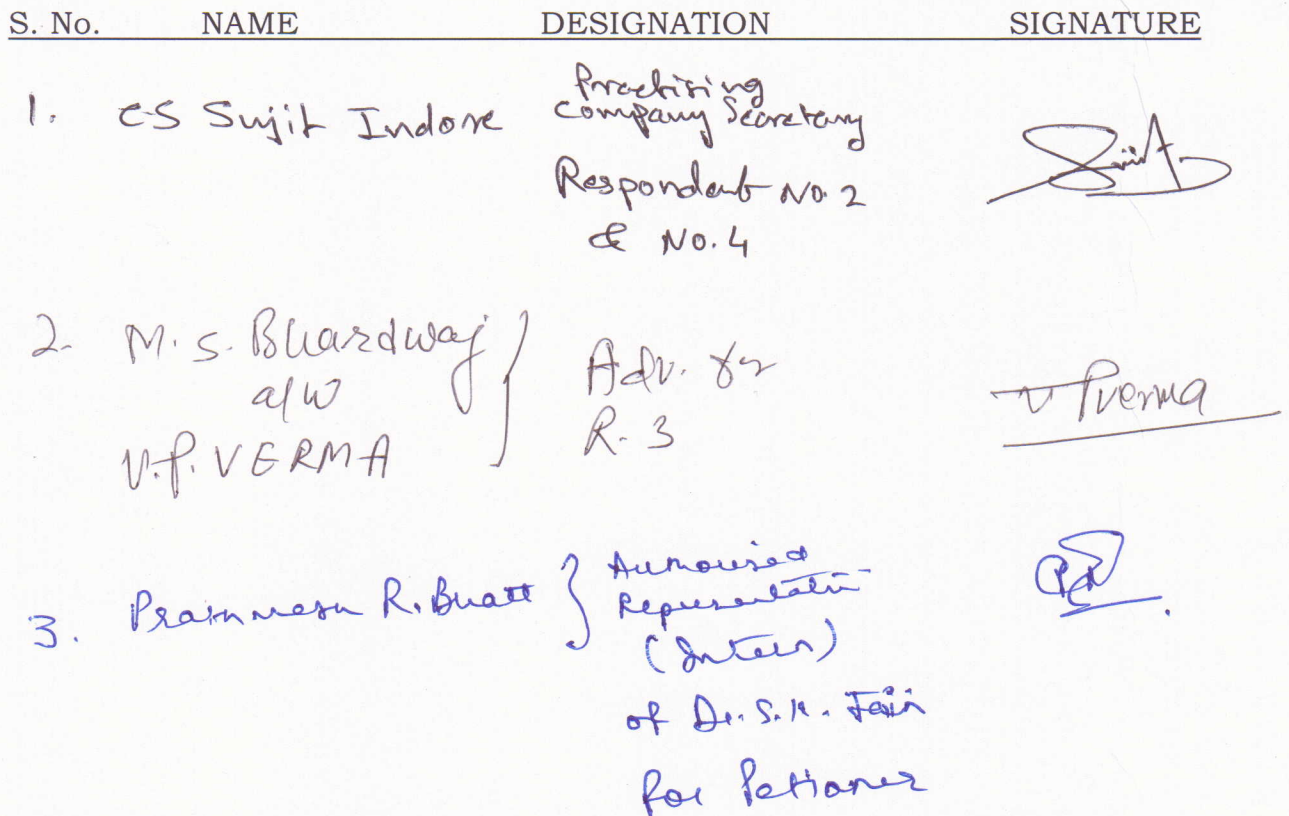 S. No. NAME DESIGNATION SIGNATURE
1. CS Sujit Indore Practising
Company Secretary
Respondent No. 2
& No. 4
2. M. S. Bhardwaj } Adv. for
a/w R. 3
V. P. VERMA
V P Verma
3. Prathmesh R. Bhatt } Authorised
Representative
(Intern)
of Dr. S. K. Jain
for Petioner